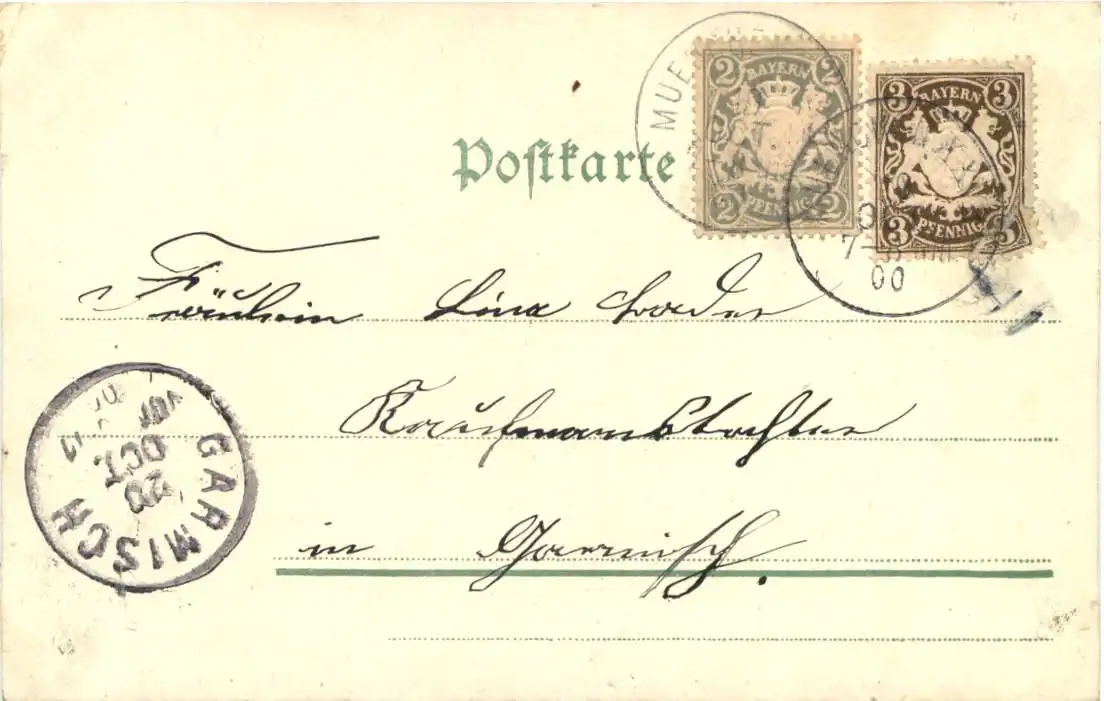 MUE
2 BAYERN 2
2 PFENNIG 2
3 BAYERN 3
3 PFENNIG 3
XII
7-
00
Postkarte
Fräulein Lina
Kaufmannstochter
in Garmisch.
GARMISCH
20
OCT.